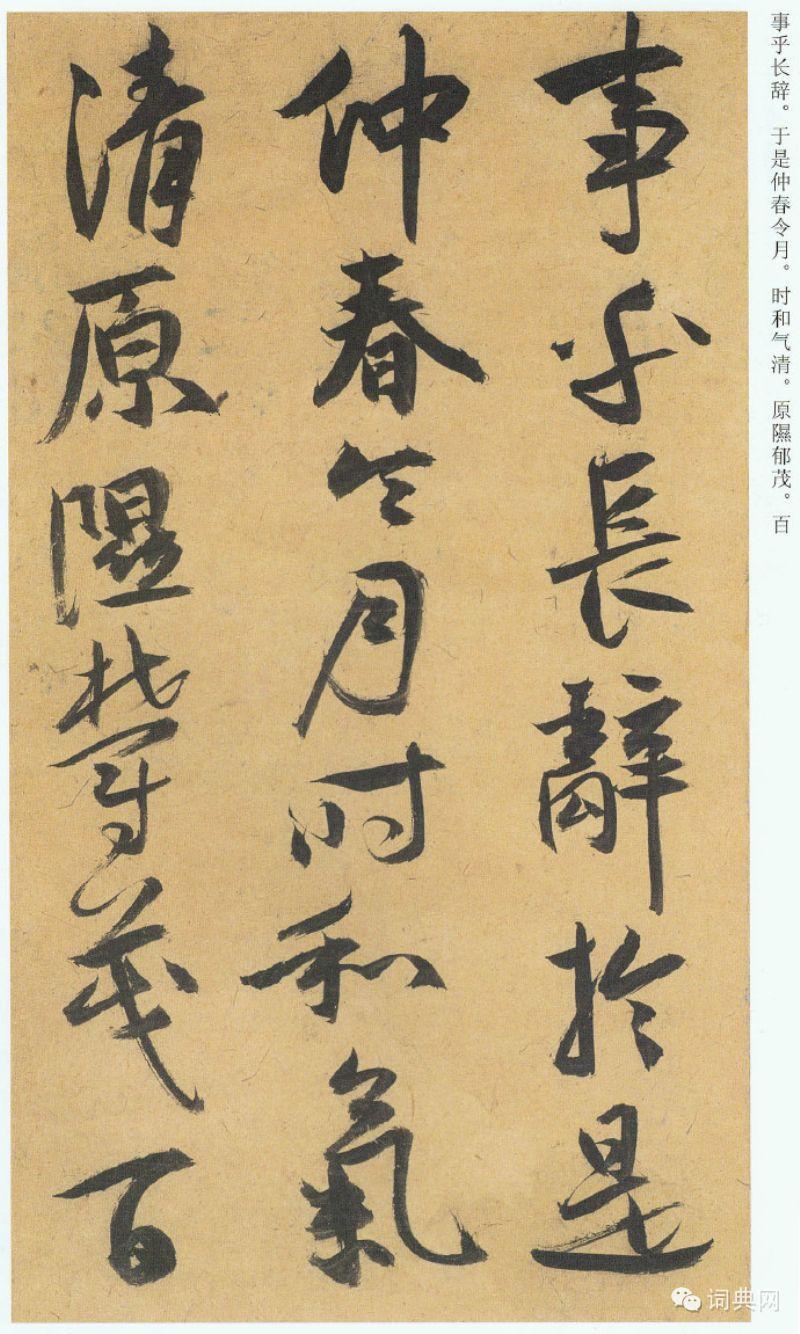 事乎长辞。于是仲春令月。时和气清。原隰郁茂。百
事乎長辭於是
仲春令月时和氣
清原隰鬱茂百
词典网